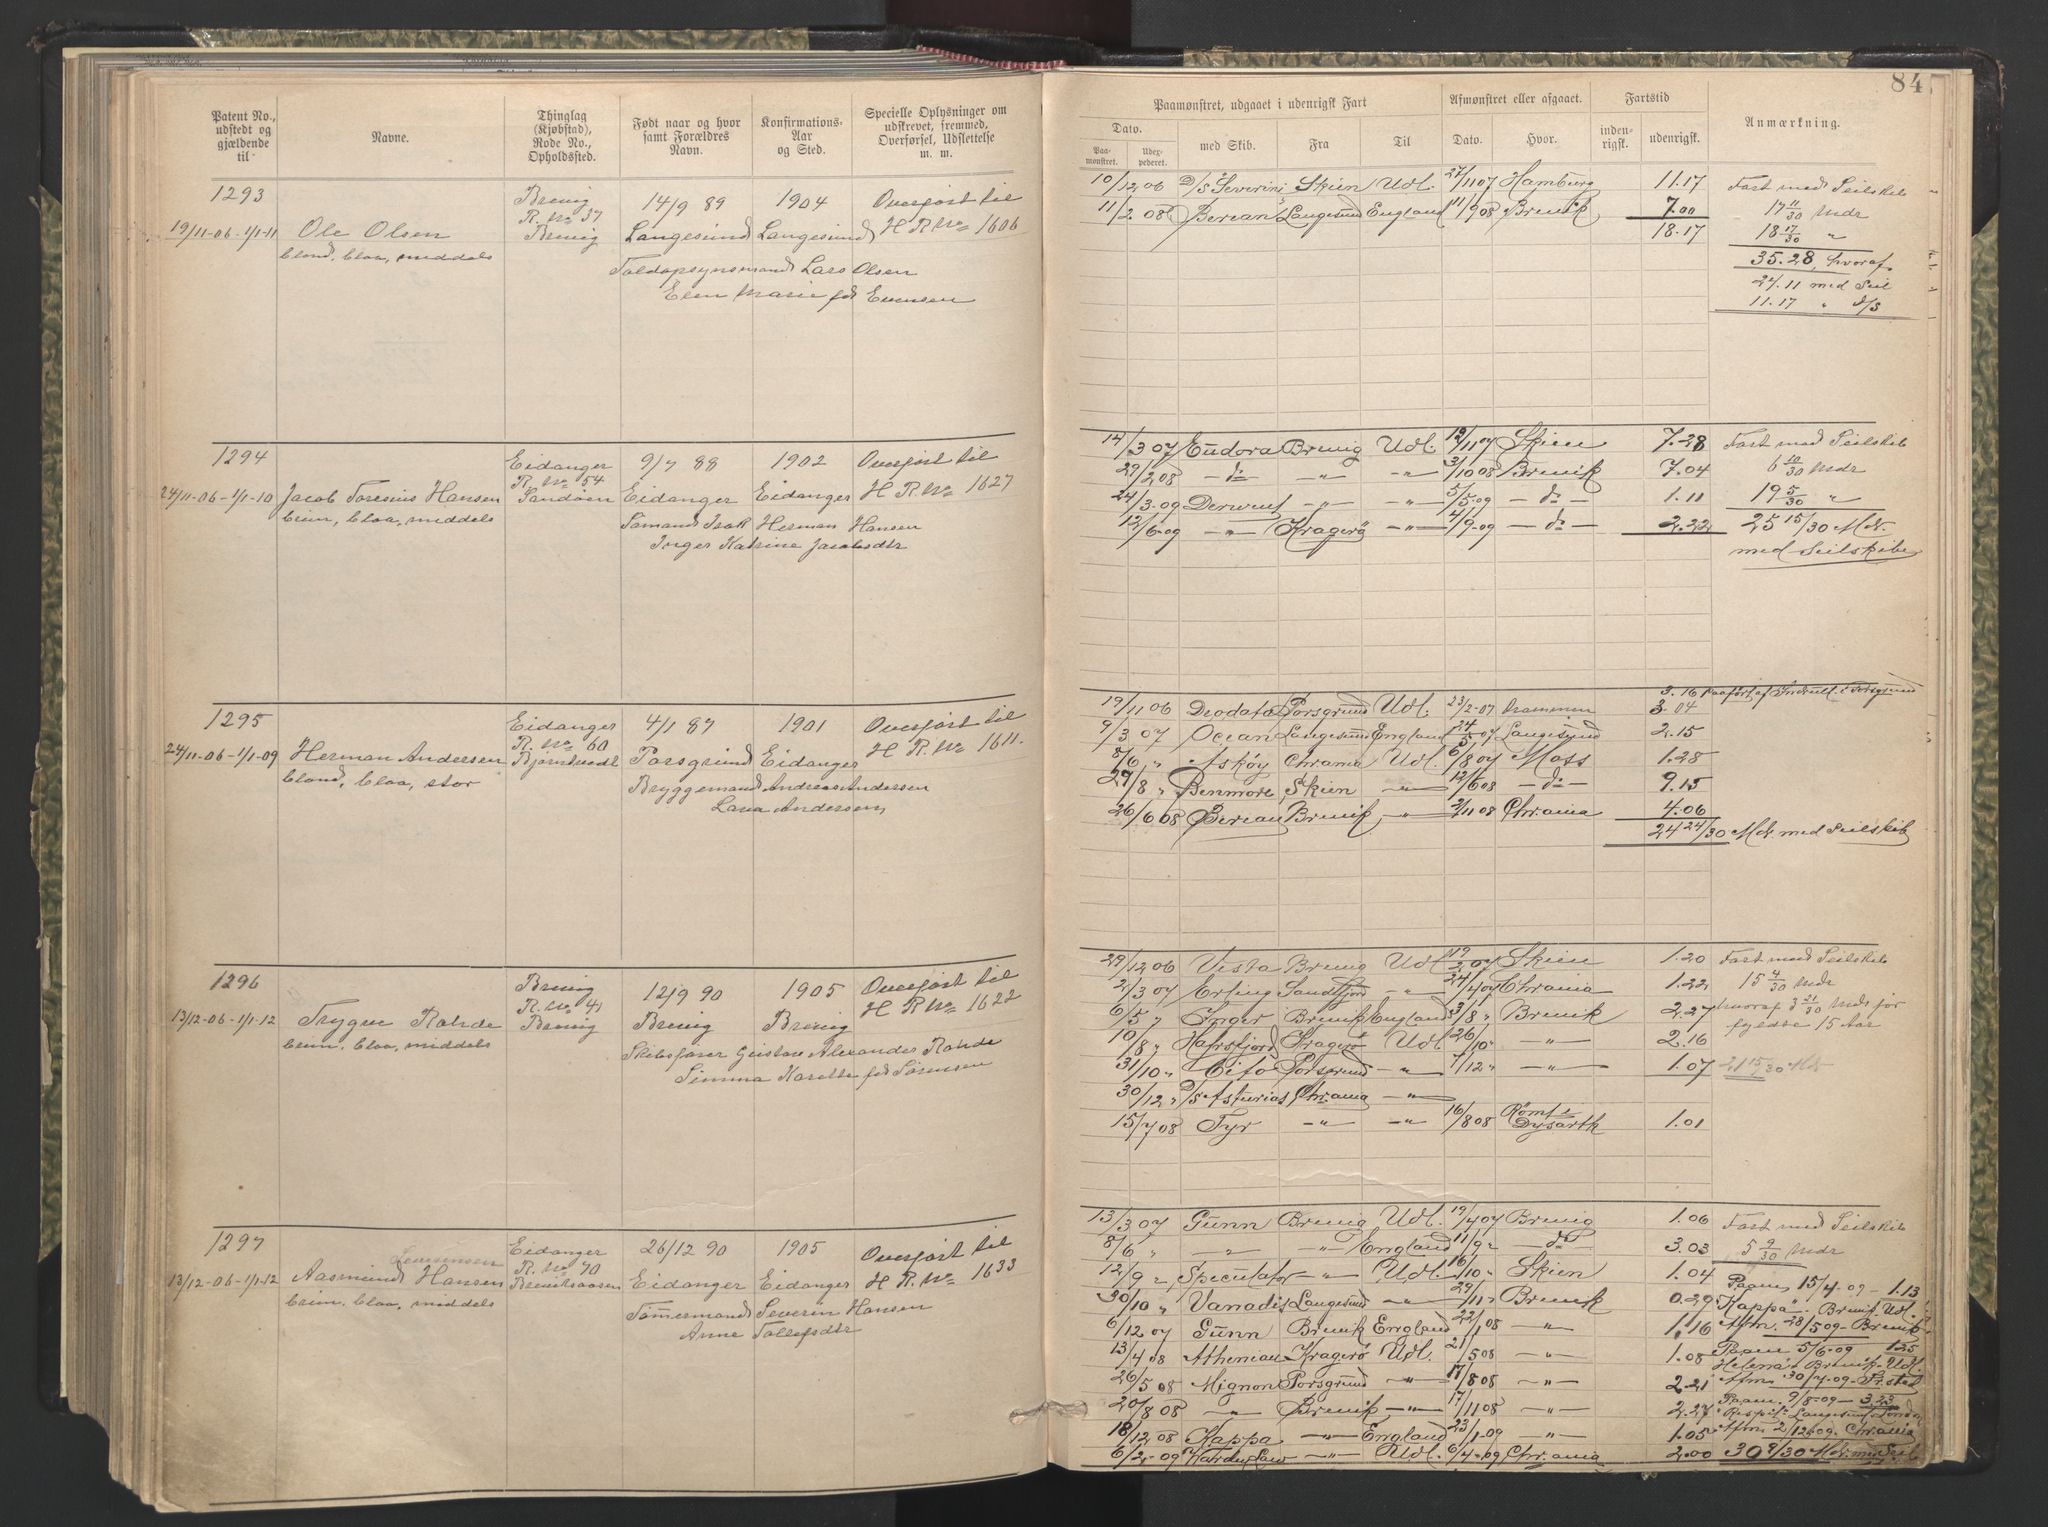 84
Patent No., udstedt og gjældende til
Navne.
Thinglag (Kjøbstad), Rode No., Opholdssted.
Født naar og hvor samt Forældres Navn.
Konfirmations-Aar og Sted.
Specielle Oplysninger om udskrevet, fremmed, Overførsel, Udslettelse m. m.
1293
19/11-06-1/1-11
Ole Olsen
blond, blaa, middels
Brevig
R. No 37
Brevig
14/9 89
Langesund
1904
Langesund
Overført til
H R. No 1606
Toldopsynsmand Lars Olsen
Elen Marie fød Evensen
1294
24/11-06-1/1-10
Jacob Toresius Hansen
brun, blaa, middels
Eidanger
R. No 54
Sandøen
9/7 88
Eidanger
1902
Eidanger
Overført til
H R. No 1627
Sømand Isak Herman Hansen
Inger Katrine Jacobsdtr
1295
24/11-06-1/1-09
Herman Andersen
blond, blaa, stor
Eidanger
R. No 60
Bjørntvedt
4/1 87
Porsgrund
1901
Eidanger
Overført til
H R. No 1611.
Bryggemand Andreas Andersen
Lava Andersen
1296
13/12-06-1/1-12
Trygve Rohde
brun, blaa, middels
Brevig
R. No 41
Brevig
12/9 90
Brevig
1905
Brevig
Overført til
H R No 1622
Skibsfører Gustav Alexander Rohde
Simma Karoline fød Sørensen
1297
13/12-06-1/1-12
Aasmund Hansen
brun, blaa, middels
Eidanger
R. No 70
Brevikaasen
26/12 90
Eidanger
1905
Eidanger
Overført til
H R. No 1633
Tømmermand Severin Hansen
Anne Tollefsdtr
Paamønstret, udgaaet i udenrigsk Fart
Afmønstret eller afgaaet.
Fartstid
Anmærkning.
Dato.
Paa-monstret.
Udex-pederet.
med Skib.
Fra
Til
Dato.
Hvor.
inden-rigsk.
udenrigsk.
10/12 06 D/S Severin Skien Udl. 27/11 07 Hamburg 11.17 Fart med Seilskib
11/2 08 Berean Langesund England 11/9 08 Brevik 7.00 17 11/30 Mdr
18.17 18 17/30 "
35.28, hvoraf
24.11 med Seil
11.17 " d/s
14/3 07 Eudora Brevig Udl. 12/11 07 Skien 7.28 Fart med Seilskib
29/2 08 - do - " " 3/10 08 Brevik 7.04 6 10/30 Mdr
24/3-09 Derwent " " 5/5-09 - do - 1.11 19 5/30 "
12/6-09 " Kragerø " 4/9-09 - do - 2.22 25 15/30 Mdr.
med Seilskibe
3.16 paaført af Indrull. i Porsgrund
19/11 06 Deodata Porsgrund Udl. 23/2-07 Drammen 3.04
9/3 07 Ocean Langesund England 24/5 07 Langesund 2.15
8/6 " Askøy Chrania Udl. 6/8 07 Moss 1.28
27/8 " Benmore Skien " 12/6 08 - do - 9.15
26/6 08 Berean Brevik " 2/11 08 Chrania 4.06
24 24/30 Mdr. med Seilskib
29/12 06 Vesta Brevig Udl 19/2 07 Skien 1.20 Fart med Seilskib
2/3 07 Erling Sandefjord " 24/4 07 Chrania 1.22 15 4/30 Mdr
6/5 " Inger Brevik England 3/8 " Brevik 2.27 hvoraf 3 21/30 Mdr før
10/8 " Hafrsfjord Kragerø Udl 26/10 " " 2.16 fyldte 15 Aar
31/10 " Cito Porsgrund " 7/12 " " 1.07 21 15/30 Mdr
30/12 " D/S Asturias Chrania "
15/7 08 Tyr " " 16/8 08 Rømt i Dysarth 1.01
13/3 07 Gunn Brevig Udl. 19/4 07 Brevig 1.06 Fart med Seilskib
8/6 " " " England 11/9 " do 3.03 5 9/30 Mdr
12/9 " Speculator " Udl 16/10 " Skien 1.04 Paam. 15/4-09 - 1.13
30/10 " Vanadis Langesund " 29/11 " Brevik 0.29 "Kappa" Brevik Udl.
6/12 07 Gunn Brevik England 22/1 08 " 1.16 Afm. 28/5 09 - Brevik
13/4 08 Athenian Kragerø Udl. 21/5 08 " 1.08 Paam 5/6-09 1.25
26/5 08 Mignon Porsgrund " 17/8 08 " 2.21 Helena - Brevik - Udl.
20/8 08 " Brevik " 17/11 08 " 2.27 Afm. 30/7-09 - Fr.stad
18/12 08 Kappa " England 23/1-09 " 1.05 Paam. 9/8-09 - 3.23
6/2-09 " Udl. 6/4-09 Chrania 2.00 Langesund London
Afm 2/12-09 Chrania
30 8/30 Mdr. med Seil